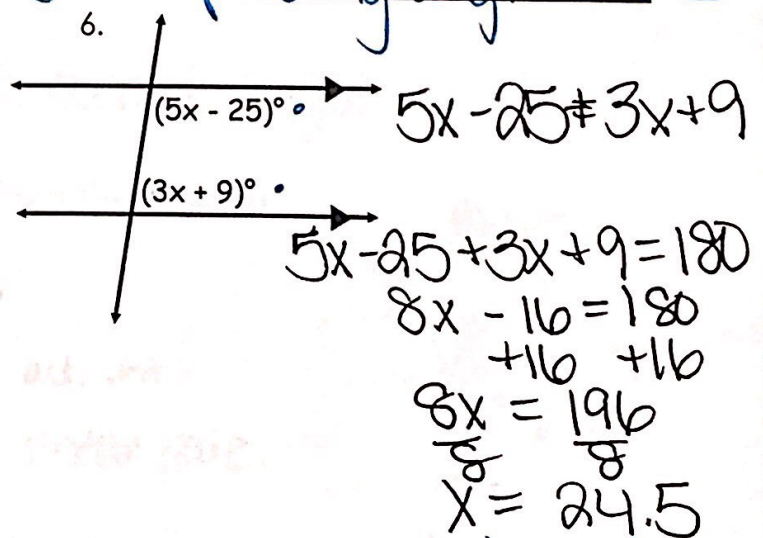 6.
(5x - 25)°
5x-25≠3x+9
(3x + 9)°
5x-25+3x+9=180
8x - 16 = 180
+16 +16
8x = 196
8 8
x = 24.5